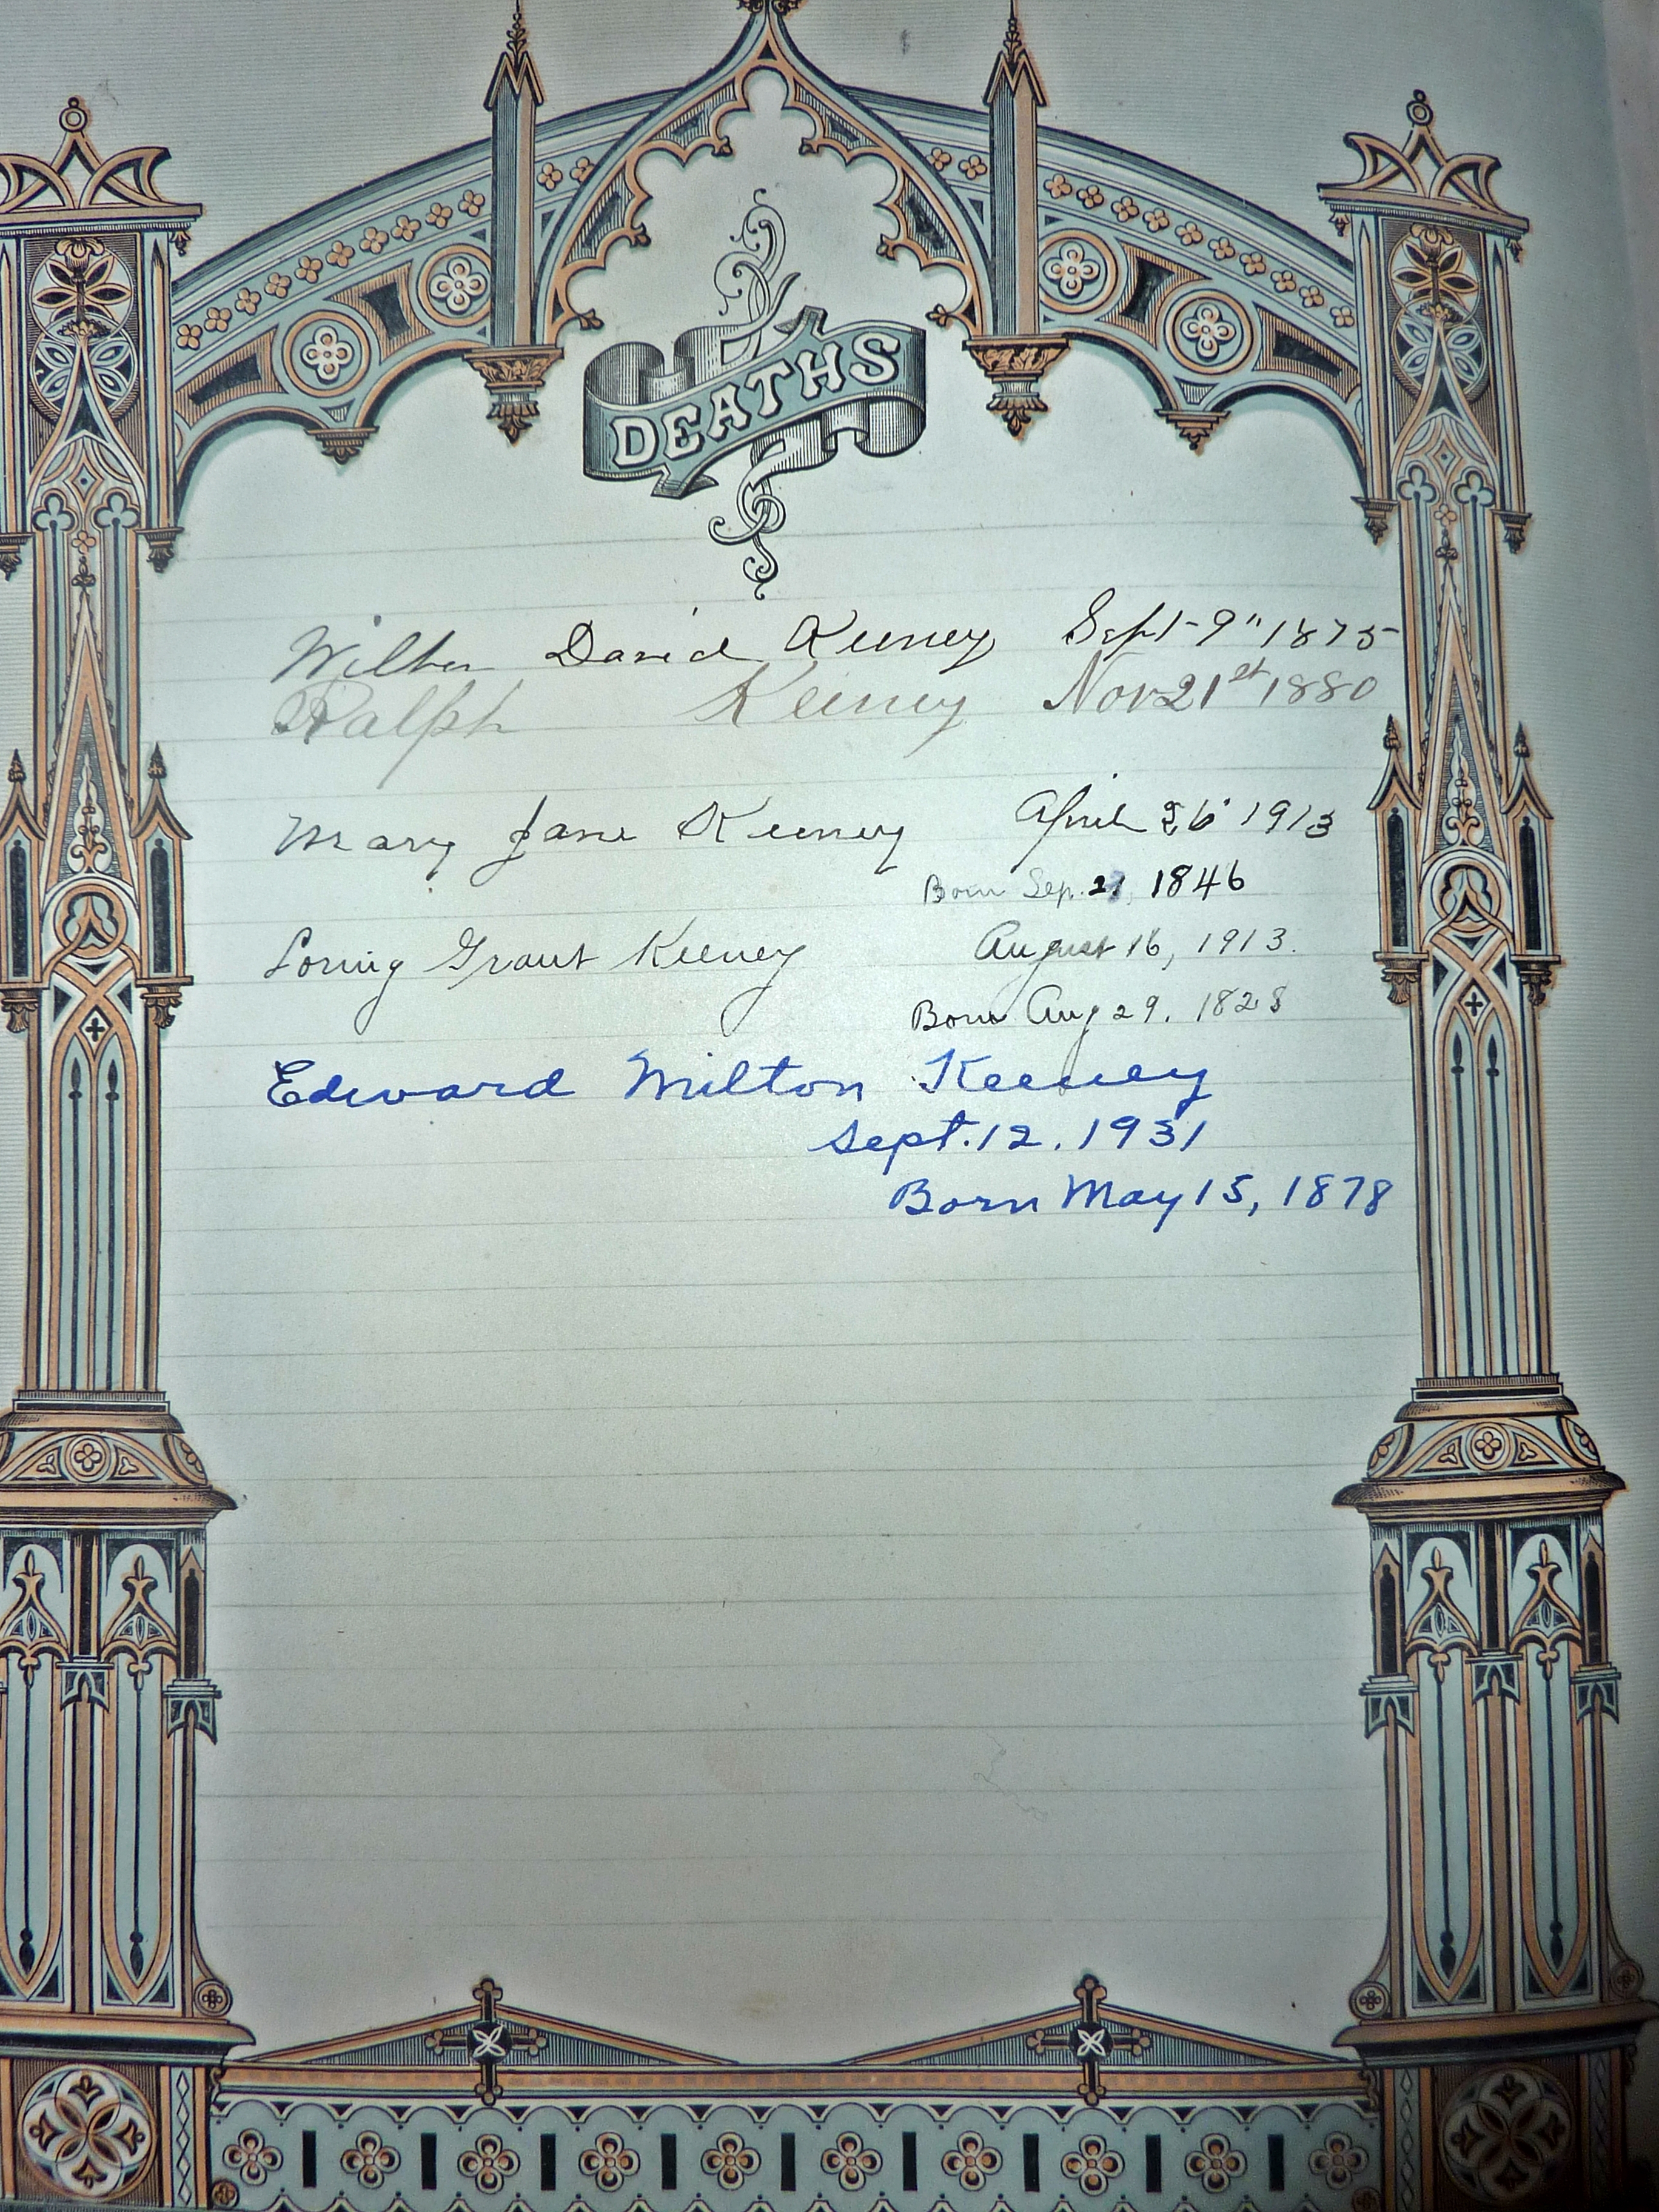 DEATHS
Wilber David Keeney Sept-9" 1875
Ralph Keeney Nov 21st 1880
Mary Jane Keeney April 26 1913
Born Sep. 21, 1846
Loring Grant Keeney August 16, 1913.
Born Aug 29. 1828
Edward Milton Keeney
Sept. 12. 1931
Born May 15, 1878